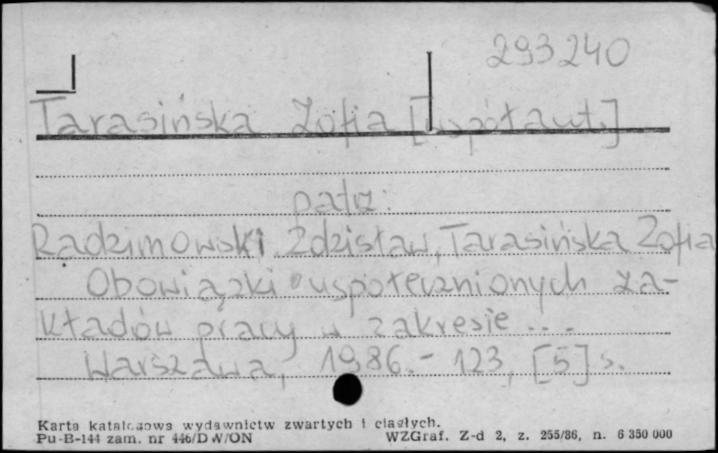 293240
Tarasińska Zofia [współaut.]
patrz:
Radzimowski Zdzisław, Tarasińska Zofia
Obowiązki uspołecznionych za-
kładów pracy w zakresie ...
Warszawa, 1986.- 123, [5] s.
Karta katalogowa wydawnictw zwartych i ciągłych.
Pu-B-144 zam. nr 446/DW/ON WZGraf. Z-d 2, z. 255/86, n. 6 350 000